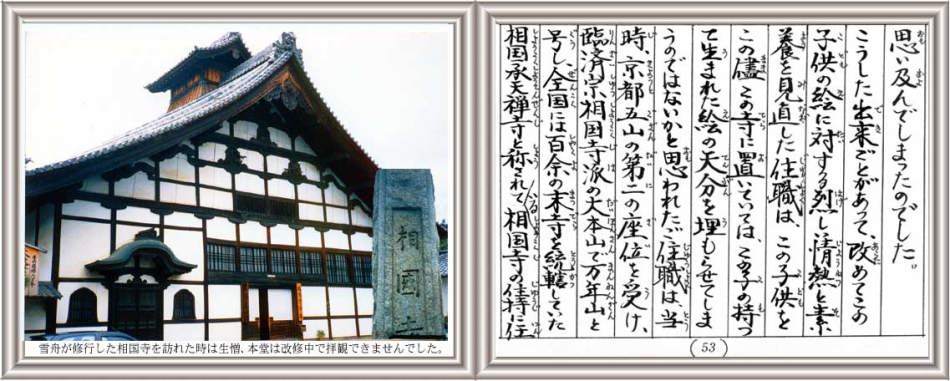 相國寺
雪舟が修行した相国寺を訪れた時は生憎、本堂は改修中で拝観できませんでした。
思い及んでしまったのでした。
こうした出来ごとがあって、改めてこの
子供の絵に対する烈しい情熱と素
養を見直した住職は、この子供を
この儘この寺に置いていては、この子の持つ
て生まれた絵の天分を埋もらせてしま
うのではないかと思われた、ご住職は、当
時、京都五山の第二の座位を受け、
臨済宗相国寺派の大本山で万年山と
号し、全国には百余の末寺を統轄していた
相国承天禅寺と称されている相国寺の住持に住
(53)